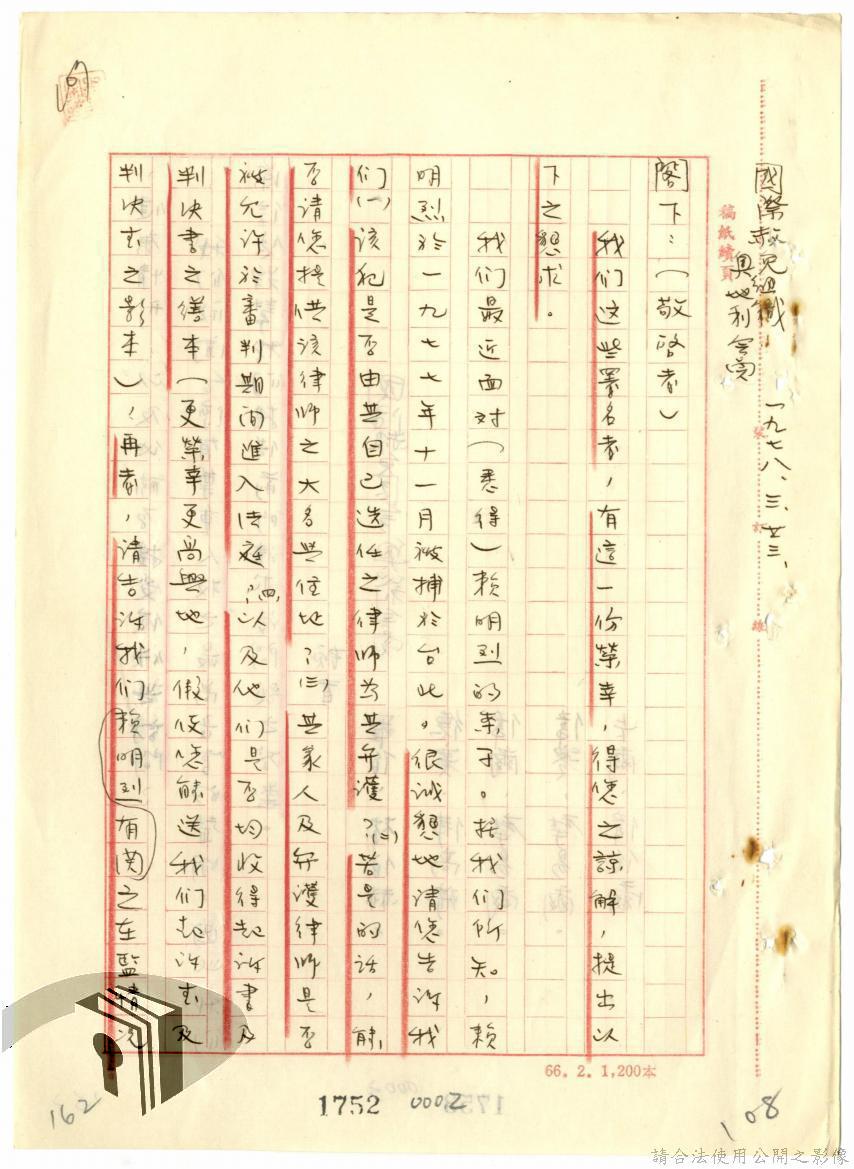 國際赦免組織,
奧地利會員
一九七八、三、廿三、
稿紙續頁
裝
訂
線
閣下:(敬啓者)
我们这些署名者,有這一份榮幸,得您之諒解,提出以
下之懇求。
我们最近面对(悉得)賴明烈的案子。据我们所知,賴
明烈於一九七七年十一月被捕於台北。很誠懇地请您告诉我
们(一)该犯是否由其自己选任之律师为其弁護?(二)若是的话,能
否请您提供该律师之大名與住址?(三)其家人及弁護律师是否
被允许於審判期间進入法庭?(四)以及他们是否均收得起诉書及
判决書之繕本(更榮幸更高興地,假使您能送我们起诉书及
判决书之影本),再者,请告诉我们賴明烈有関之在監情况
66.2.1,200本
1752
0002
162
108
請合法使用公開之影像